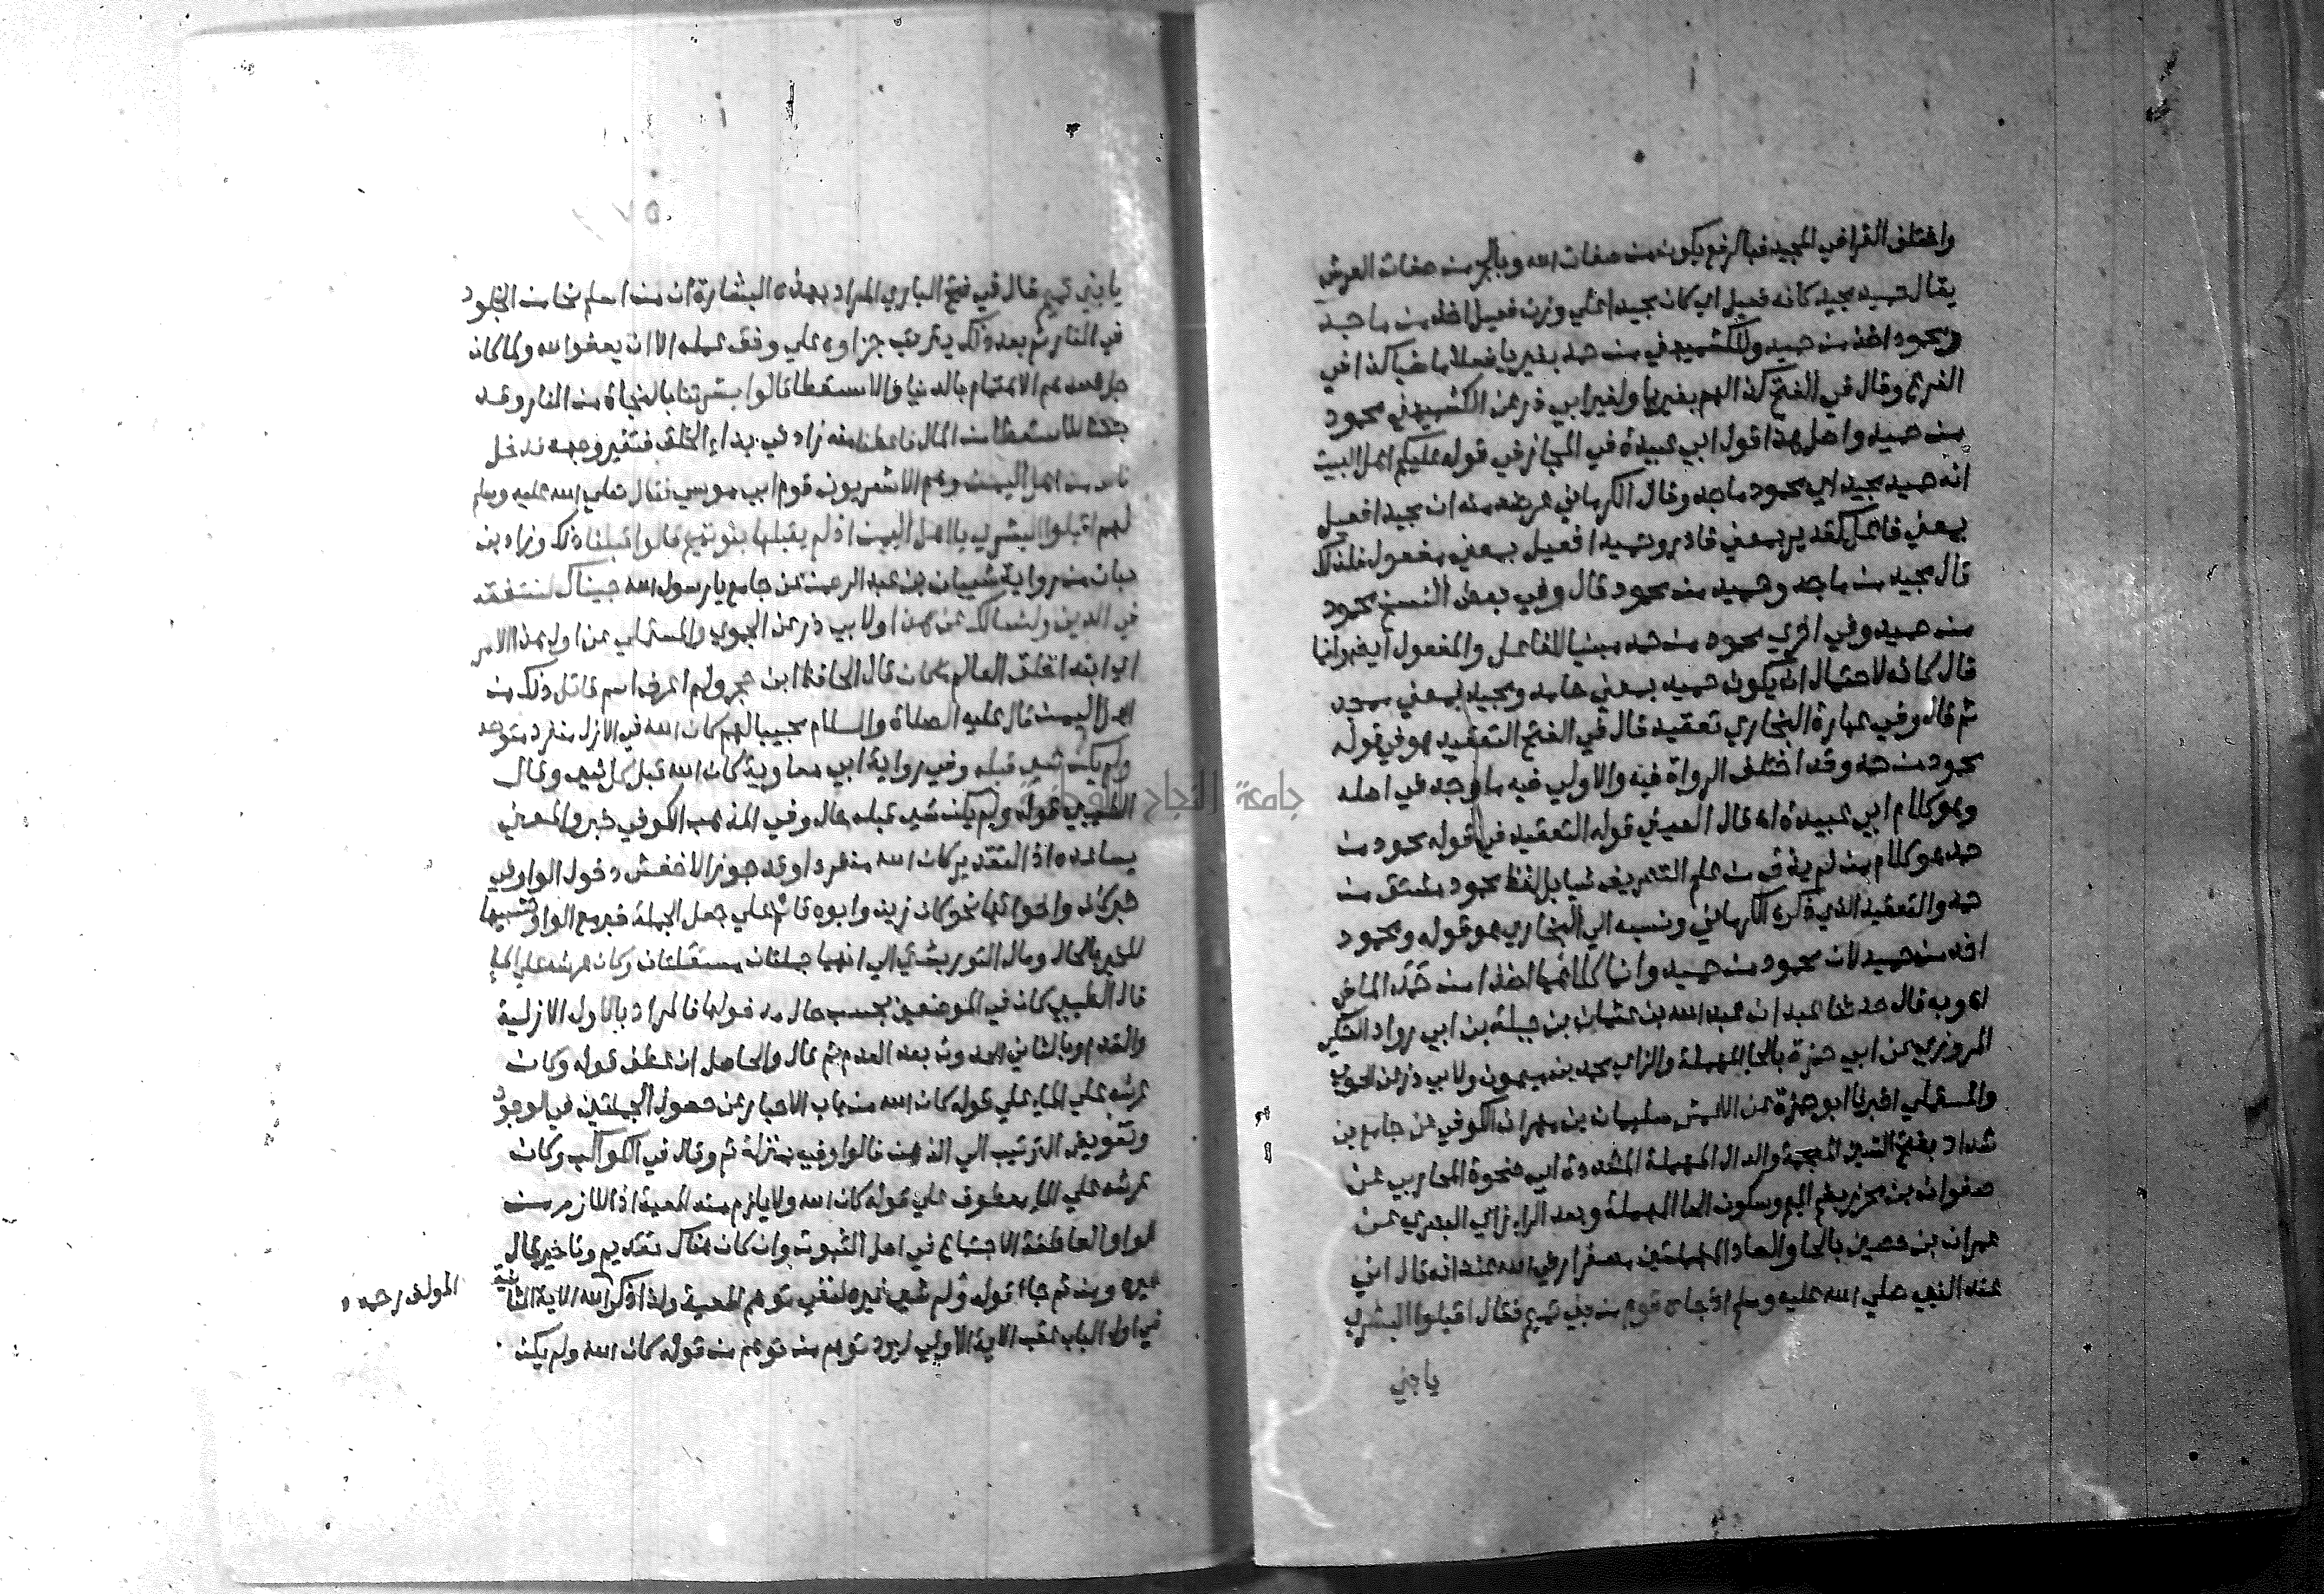 واختلف القرا في المجيد فبالرفع يكون من صفات الله وبالجر من صفات العرش
يقال حميد مجيد كانه فعيل اي كان مجيدا علي وزن فعيل اخذ من ماجد
ومحمود اخذ من حميد وللكشميهني من حمد بغير يا فعلا ماضيا كذا في
الفرع وقال في الفتح كذا لهم بغير يا ولغير ابي ذر عن الكشميهني محمود
من حميد واصل هذا قول ابي عبيدة في المجاز في قوله عليكم اهل البيت
انه حميد مجيد اي محمود ماجد وقال الكرماني غرضه منه ان مجيدا فعيل
بمعني فاعل كقدير بمعني قادر وحميدا فعيل بمعني مفعول فلذلك
قال مجيد من ماجد وحميد من محمود قال وفي بعض النسخ محمود
من حميد وفي اخري محمود من حمد مبنيا للفاعل والمفعول ايضا وانما
قال كانه لاحتمال ان يكون حميد بمعني حامد ومجيد بمعني ممجد
ثم قال وفي عبارة البخاري تعقيد قال في الفتح التعقيد هو في قوله
محمود من حمد وقد اختلف الرواة فيه والاولي فيه ما وجد في اصله
وهو كلام ابي عبيدة اه قال العيني قوله التعقيد في قوله محمود من
حمد هو كلام من لم يذق من علم التصريف شيا بل لفظ محمود مشتق من
حمد والتعقيد الذي ذكره الكرماني ونسبه الي البخاري هو قوله ومحمود
اخذ من حميد لان محمود من حميد وانما كلاهما اخذا من حمد الماضي
اه وبه قال حدثنا عبدان عبد الله بن عثمان بن جبلة بن ابي رواد العتكي
المروزي عن ابي حمزة بالحا المهملة والزاي محمد بن ميمون ولابي ذر عن الحموي
والمستملي اخبرنا ابو حمزة عن الاعمش سليمان بن مهران الكوفي عن جامع بن
شداد بفتح الشين المعجمة والدال المهملة المشددة ابي صخرة المحاربي عن
صفوان بن محرز بضم الميم وسكون الحا المهملة وبعد الرا زاي البصري عن
عمران بن حصين بالحا والصاد المهملتين مصغرا رضي الله عنه انه قال اني
عند النبي صلي الله عليه وسلم اذ جاه قوم من بني تميم فقال اقبلوا البشري
يا بني
يا بني تميم قال في فتح الباري المراد بهذه البشارة ان من اسلم نجا من الخلود
في النار ثم بعد ذلك يترتب جزاوه علي وفق عمله الا ان يعفو الله ولما كان
جل قصدهم الاهتمام بالدنيا والاستعطا قالوا بشرتنا بالنجاة من النار وقد
جئنا للاستعطا من المال فاعطنا منه زاد في بدا الخلق فتغير وجهه فدخل
ناس من اهل اليمن وهم الاشعريون قوم ابي موسي فقال صلي الله عليه وسلم
لهم اقبلوا البشري يا اهل اليمن اذ لم يقبلها بنو تميم قالوا قبلنا ذلك وزاد ابن
حبان من رواية شيبان بن عبد الرحمن عن جامع يا رسول الله جيناك لنتفقه
في الدين ولنسالك عن هذا ولابي ذر عن الحموي والمستملي عن اول هذا الامر
اي ابتدا خلق العالم ما كان قال الحافظ ابن حجر ولم اعرف اسم قائل ذلك من
اهل اليمن قال عليه الصلاة والسلام مجيبا لهم كان الله في الازل منفرد متوحد
ولم يكن شي قبله وفي رواية ابي معاوية كان الله قبل كل شي وقال
الطيبي قوله ولم يكن شي قبله حال وفي المذهب الكوفي خبر والمعني
يساعده اذ التقدير كان الله منفردا وقد جوز الاخفش دخول الواو في
خبر كان واخواتها نحو كان زيد وابوه قائم علي جعل الجملة خبر مع الواو تشبيها
للخبر بالحال ومال التوربشتي الي انهما جملتان مستقلتان وكان عرشه علي الما
قال الطيبي كان في الموضعين بحسب حال مدخولها فالمراد بالاول الازلية
والقدم وبالثاني الحدوث بعد العدم ثم قال والحاصل ان عطف قوله وكان
عرشه علي الما علي قوله كان الله من باب الاخبار عن حصول الجملتين في الوجود
وتفويض الترتيب الي الذهن قالوا وفيه منزلة ثم وقال في الكواكب وكان
عرشه علي الما معطوف علي قوله كان الله ولا يلزم منه المعية اذ اللازم من
الواو العاطفة الاجتماع في اصل الثبوت وان كان هناك تقديم وتاخير قال
غيره ومن ثم جاء قوله ولم شي غيره لنفي توهم المعية ولذا ذكر الله الاية الثانية
المولف رحمه
في اول الباب عقب الاية الاولي ليرد توهم من توهم من قوله كان الله ولم يكن
جامعة النجاح الوطنية